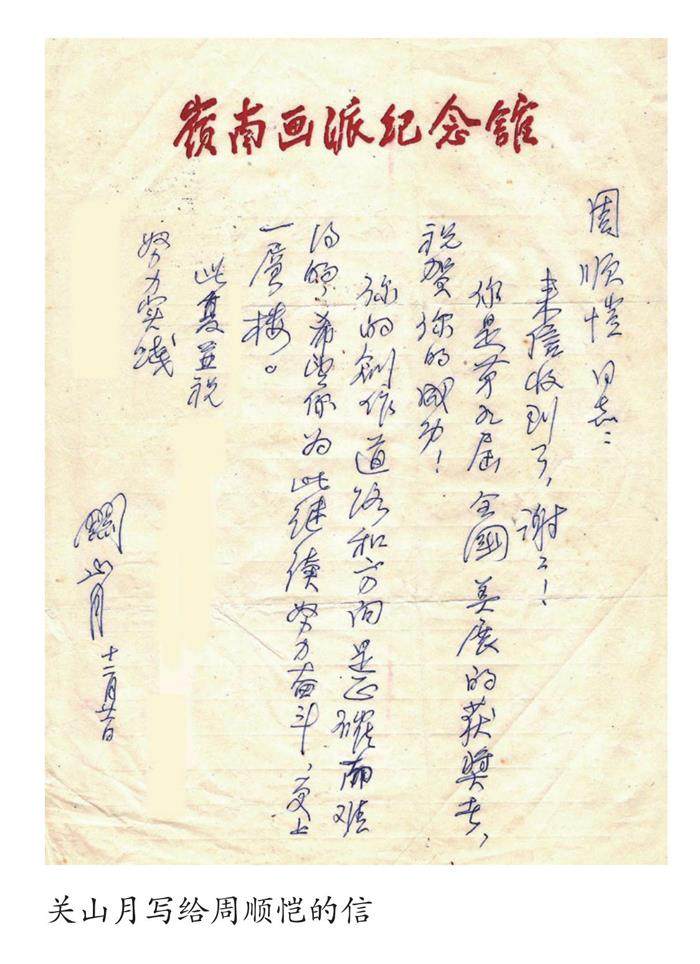 嶺南画派纪念館
周顺恺同志：
来信收到了，谢谢！
你是第九届全國美展的获奖者，
祝贺你的成功！
你的創作道路和方向是正確而难
得的，希望你为此继续努力奋斗，更上
一层楼。
此复并祝
努力实践
關山月
十二月廿日
关山月写给周顺恺的信